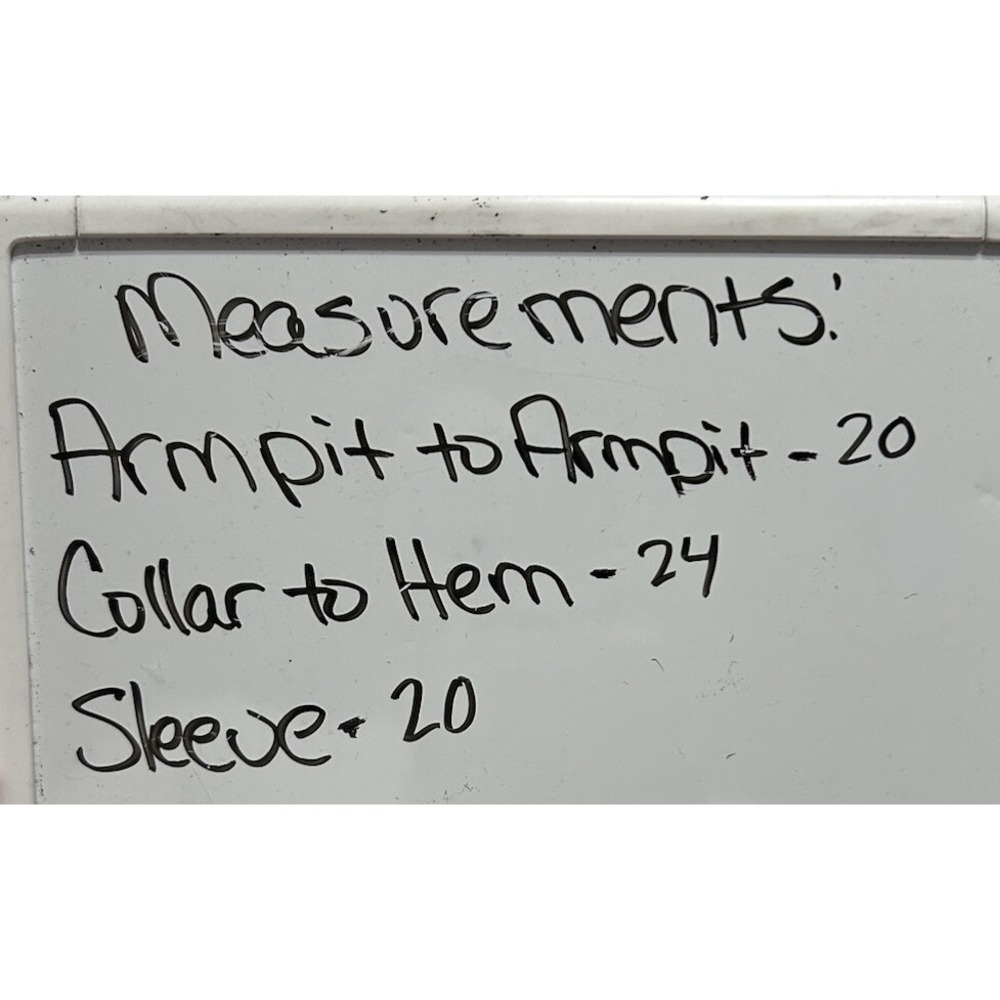 Measurements:
Armpit to Armpit - 20
Collar to Hem - 24
Sleeve - 20